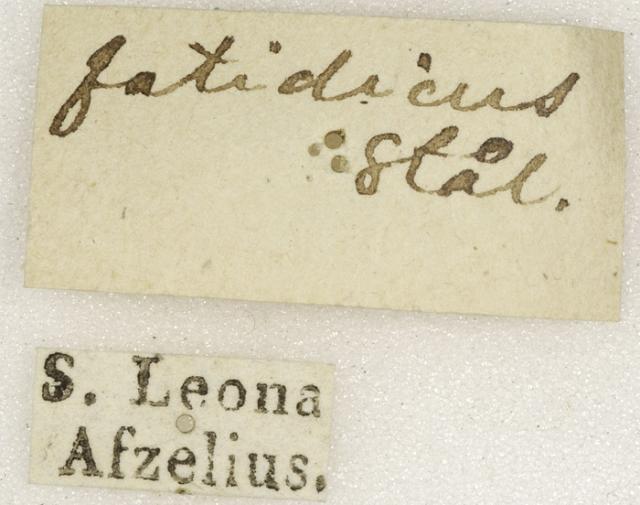 fatidicus
Stål.
S. Leona
Afzelius.